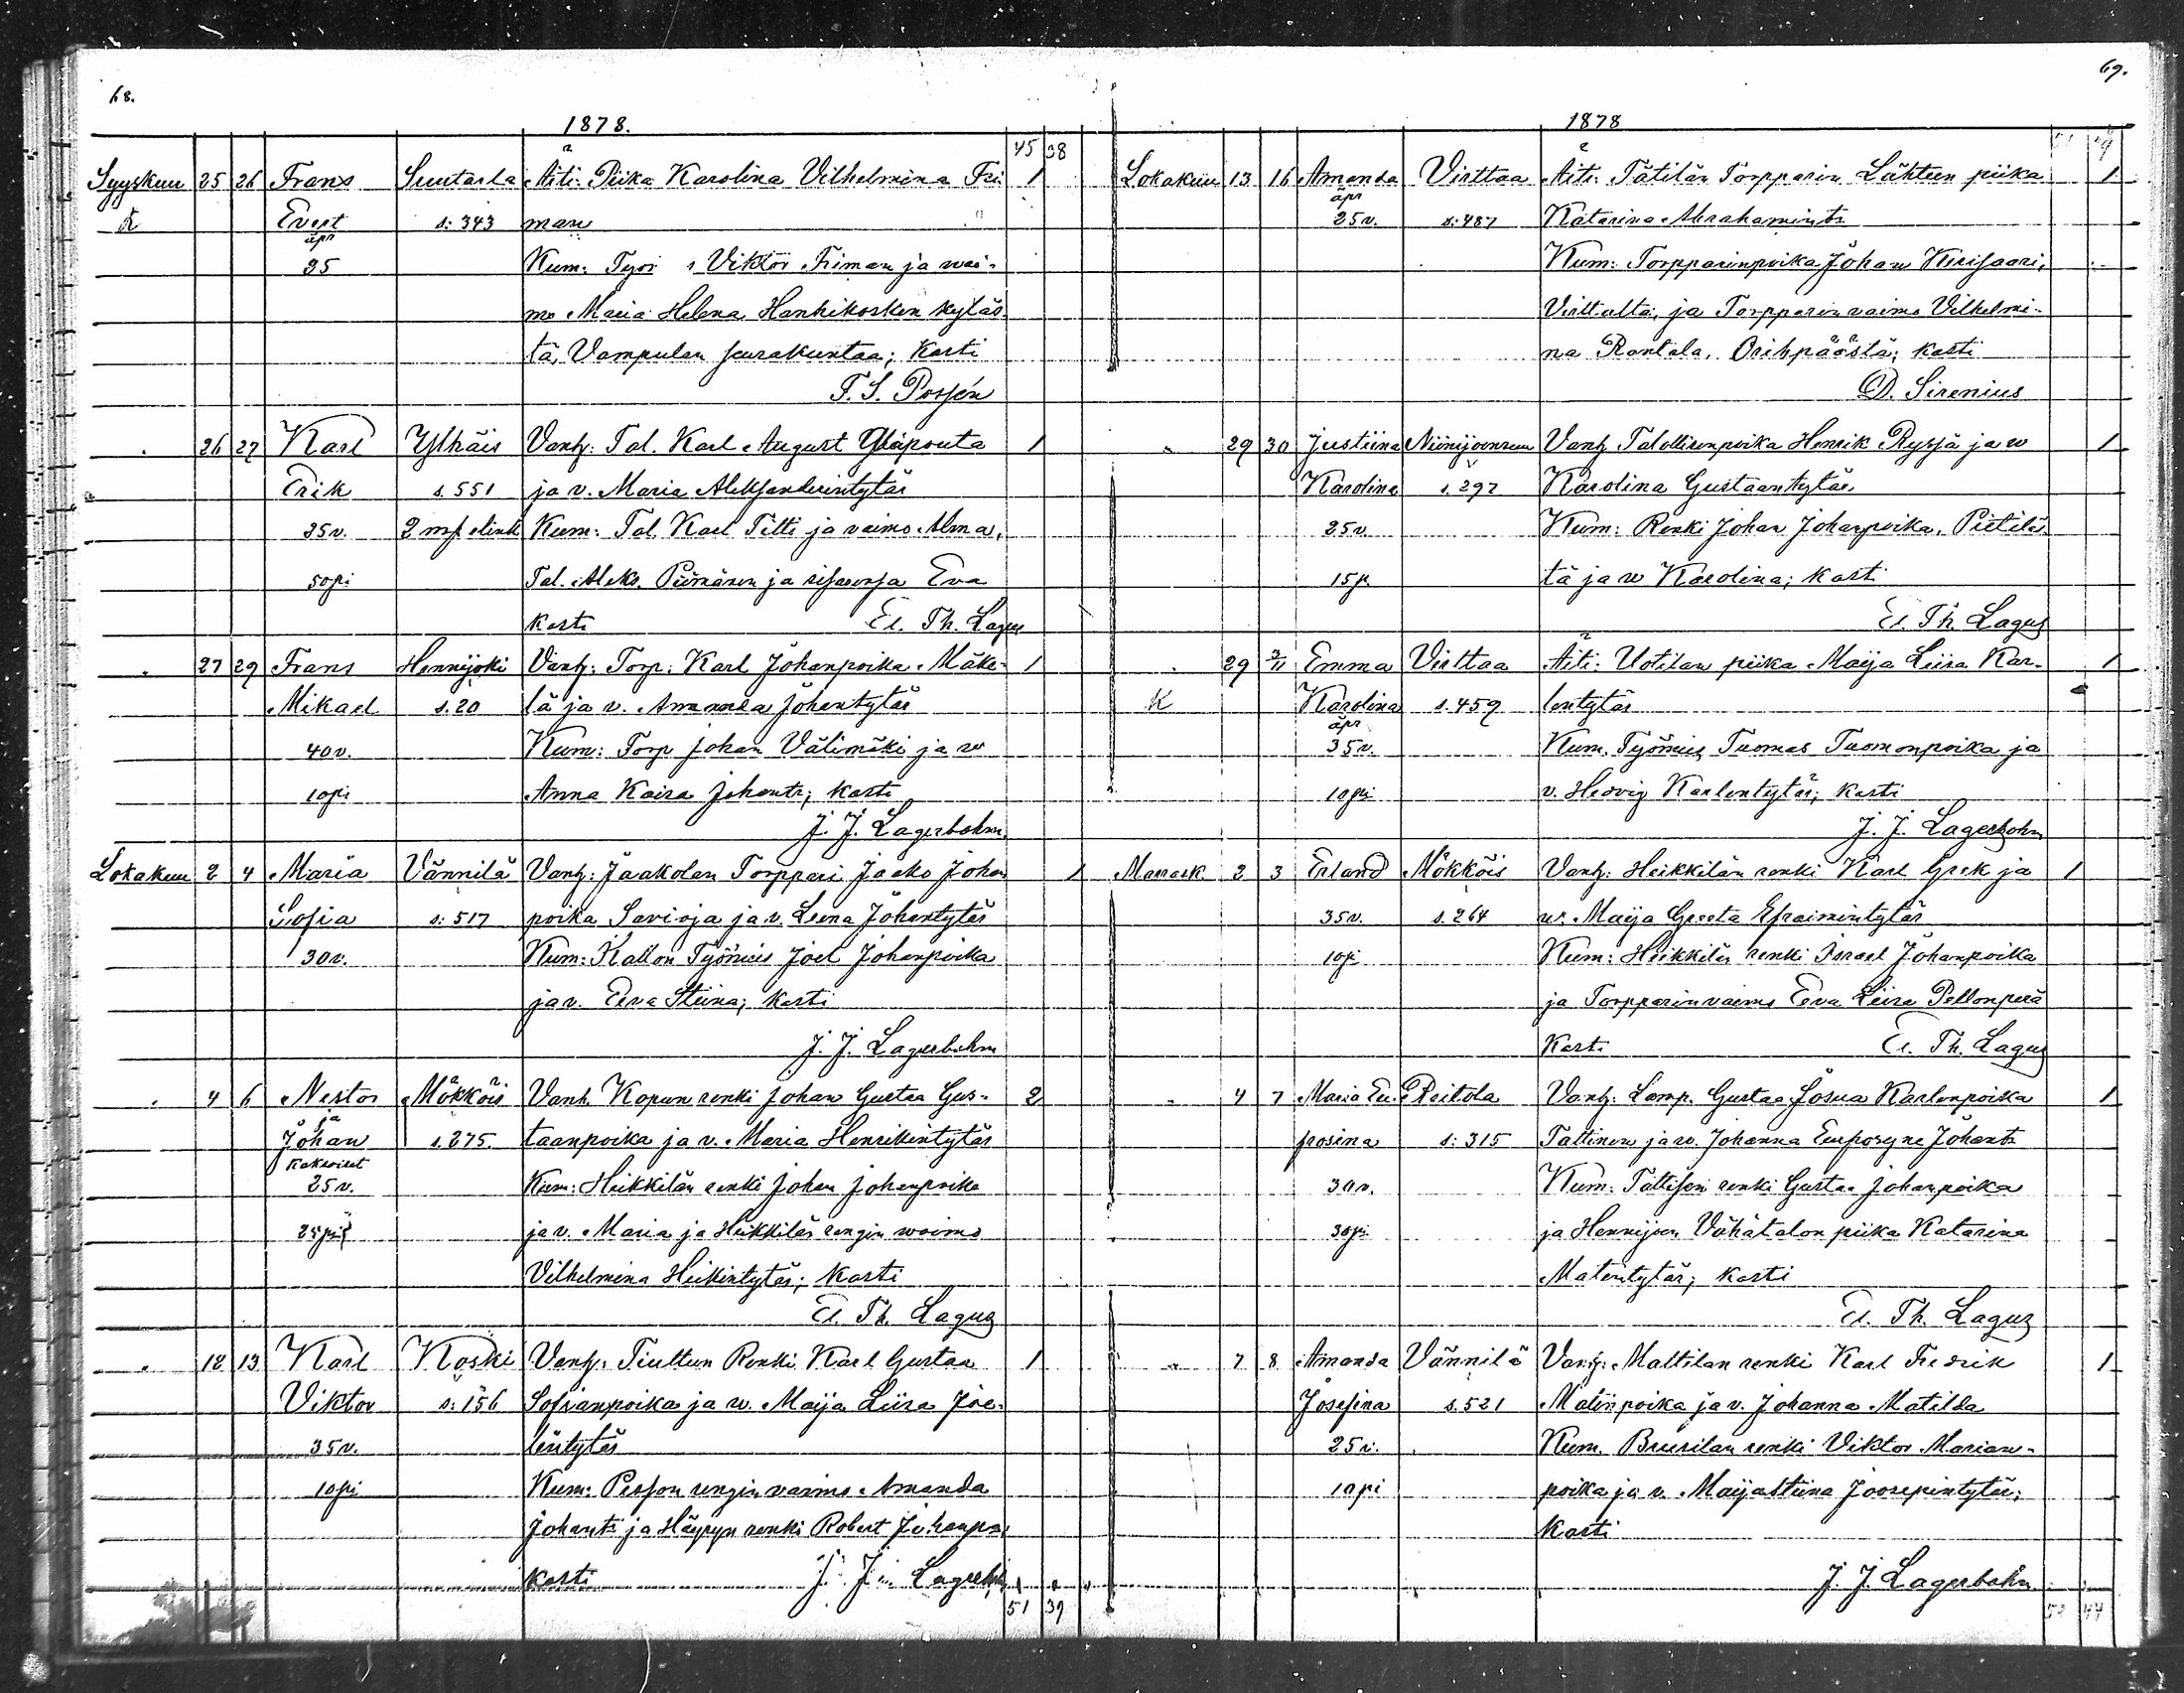 68.
1878.
45 38
Syyskuu 25 26 Frans Suutarla Äiti: Piika Karolina Vilhelmina Fri 1
Evert s: 343 man
äpr
25 Kum: Viktor Friman ja wai-
mo Maria Helena Hanhikosken kyläs
tä, Vampulan seurakuntaa; kasti
F. S. Possén
" 26 27 Karl Ylhäis Vanh: Tal. Karl August Yliapouta 1
Erik s. 551 ja v. Maria Aleksanderintytär
35v. Kum: Tal. Karl Titti ja vaimo Alma,
50pi Tal. Aleks. ja Eva
kasti El. Th. Lagus
" 27 29 Frans Hennijoki Vanh: Torp. Karl Johanpoika Mäke- 1
Mikael s. 20 lä ja v. Amanda Johantytär
40v. Kum: Torp Johan Välimäki ja w
10pi Anna Kaisa Johantr; kasti
J. J. Lagerbohm
Lokakuu 2 4 Maria Vännilä Vanh: Jaakolan Torppari Jaako Johan 1
Sofia s: 517 poika Savioja ja v. Leena Johantytär
30v. Kum: Kallon Työmies Joel Johanpoika
ja v. Eeva Stiina; kasti
J. J. Lagerbohm
" 4 6 Nestor Mökköis Vanh. Kopun renki Johan Gustaa Gus- 2
ja
Johan s. 275 taanpoika ja v. Maria Henrikintytär
Kaksoiset
25v. Kum: Heikkilän renki Johan Johanpoika
25pi ja v. Maria ja Heikkilän rengin waimo
Vilhelmina Heikintytär; kasti
El. Th. Lagus
" 12 13 Karl Koski Vanh: Tiuttun Renki Karl Gustaa 1
Viktor s: 156 Sofianpoika ja w. Maija Liisa Joe-
35v. lintytär
10pi Kum: Pesson rengin vaimo Amanda
Johantr ja Häyryn renki Robert Johanpoi
kasti J. J. Lagerbohm
51 39
69.
1878
Lokakuu 13 16 Amanda Virttaa Äiti: Tätilän Torpparin Lähteen piika 1
äpr
25v. s: 487 Katarina Abrahamintr
Kum: Torpparinpoika Johan Kirisaari,
Virttalta, ja Torpparin vaimo Vilhelmi-
na Rantala, Oripäästä; kasti
D. Sirenius
" 29 30 Justiina Niinijoensuu Vanh Talollisenpoika Henrik Ryssä ja w 1
Karolina s. 297 Karolina Gustaantytär
25v. Kum: Renki Johan Johanpoika, Pietiläs
15p. tä ja w Karolina; kasti
El. Th. Lagus
" 29 3/11 Emma Virttaa Äiti: Uotilan piika Maija Liisa Kar- 1
K Karolina s. 459 lentytär
äpr
35v. Kum. Työmies Tuomas Tuomonpoika ja
10pi v. Hedvig Kaarlentytär; kasti
J. J. Lagerbohm
Marrask 2 3 Erland Mökköis Vanh: Heikkilän renki Karl Grek ja 1
35v. s. 264 w. Maija Greeta Efraimintytär
10pi Kum: Heikkilän renki Israel Johanpoika
ja Torpparinvaimo Eeva Liisa Pellonperä
Kasti El. Th. Lagus
" 4 7 Maria Eu- Reitola Vanh: Lamp. Gustaa Josua Karlenpoika 1
frosina s: 315 Tattinen ja w. Johanna Eufrosyne Johantr
30v. Kum: Tattisen renki Gustaa Johanpoika
30pi ja Hennijoen Vähätalon piika Katarina
Matintytär; kasti
El. Th. Lagus
" 7 8 Amanda Vännilä Vanh: Maltilan renki Karl Fredrik 1
Josefina s. 521 Matinpoika ja v. Johanna Matilda
25v. Kum. Bruusilan renki Viktor Marian-
10pi poika ja v. Maijastiina Joosepintytär;
Kasti
J. J. Lagerbohm
44